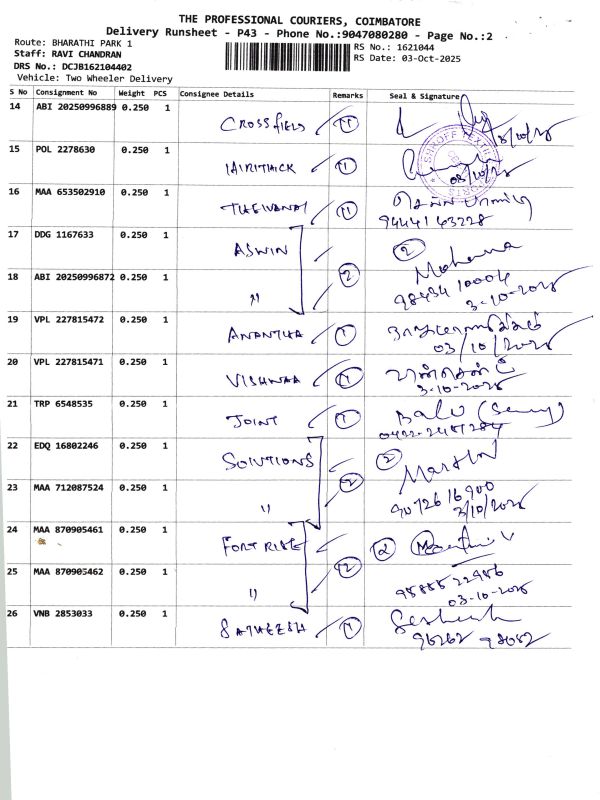 THE PROFESSIONAL COURIERS, COIMBATORE
Delivery Runsheet - P43 - Phone No.:9047080280 - Page No.:2
Route: BHARATHI PARK 1
Staff: RAVI CHANDRAN
DRS No.: DCJB162104402
Vehicle: Two Wheeler Delivery
RS No.: 1621044
RS Date: 03-Oct-2025
S No Consignment No Weight PCS Consignee Details Remarks Seal & Signature
14 ABI 20250996889 0.250 1 CROSSFIELD 1
15 POL 2278630 0.250 1 1 03/10/25
16 MAA 653502910 0.250 1 1
94441 43228
17 DDG 1167633 0.250 1 ASWIN 2 Mohana
18 ABI 20250996872 0.250 1 " 2 98434 10004
3-10-2025
19 VPL 227815472 0.250 1 ANANTHA 1
03/10/2025
20 VPL 227815471 0.250 1 1
3-10-2025
21 TRP 6548535 0.250 1 JOINT 1 Balu
22 EDQ 16802246 0.250 1 SOLUTIONS 2
23 MAA 712087524 0.250 1 " 2 90726 16900
3/10/2025
24 MAA 870905461 0.250 1 FORTRISE 2
25 MAA 870905462 0.250 1 " 2
03-10-2025
26 VNB 2853033 0.250 1 SATHEESH 1